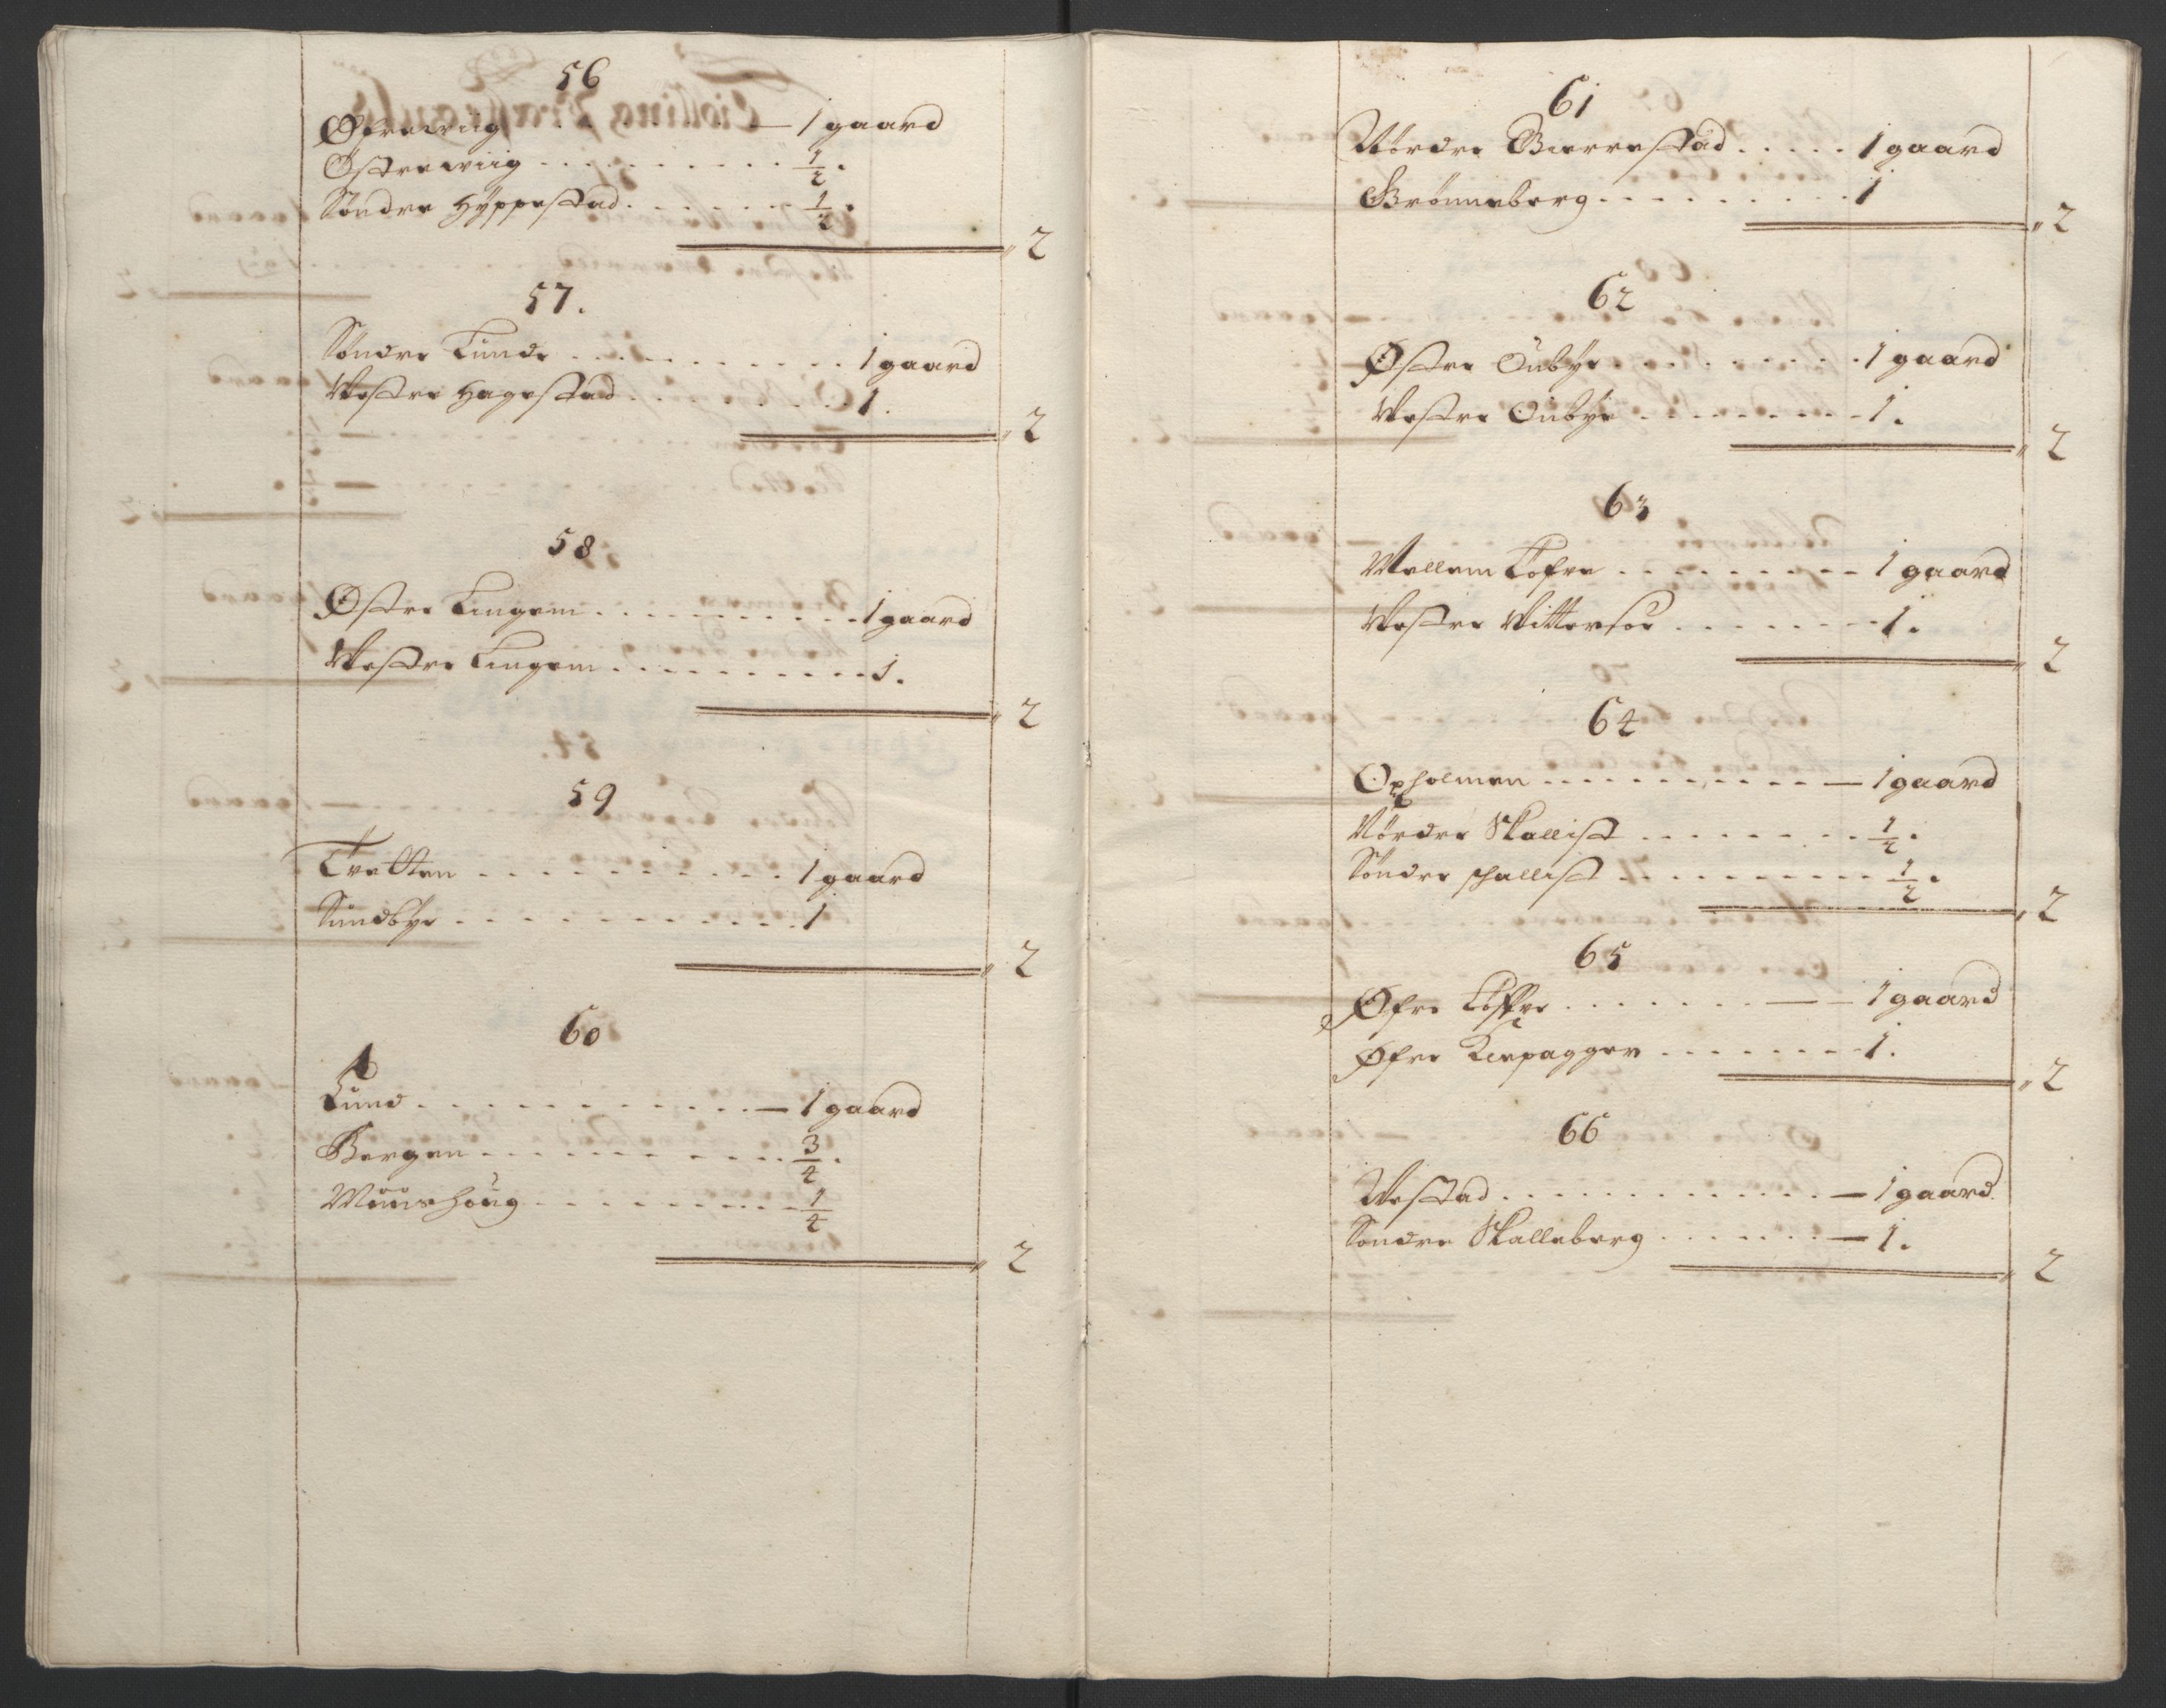 56
Øfrewiig — 1 gaard
Østrewiig ½.
Søndre Hyppestad ½.
2
57.
Søndre Lunde 1 gaard
Westre Hagestad 1.
2
58
Østre Lingem 1 gaard
Westre Lingem 1.
2
59
Tvetten 1 gaard
Sundbye 1
2
60
Lund — 1 gaard
Bergen ¾.
Muushoug ¼
2
61
Nørdre Bierrestad 1 gaard
Brønneberg 1
2
62
Østre Oubye 1 gaard
Westre Oubye 1.
2
63
Mellem Løfre 1 gaard
Westre Wittersøe 1.
2
64
Opholmen — 1 gaard
Nørdre Skallist ½.
Søndre schallist ½.
2
65
Øfre Løffre — 1 gaard
Øfre Kiepagger 1.
2
66
Westad — 1 gaard
Søndre Skalleberg — 1.
2